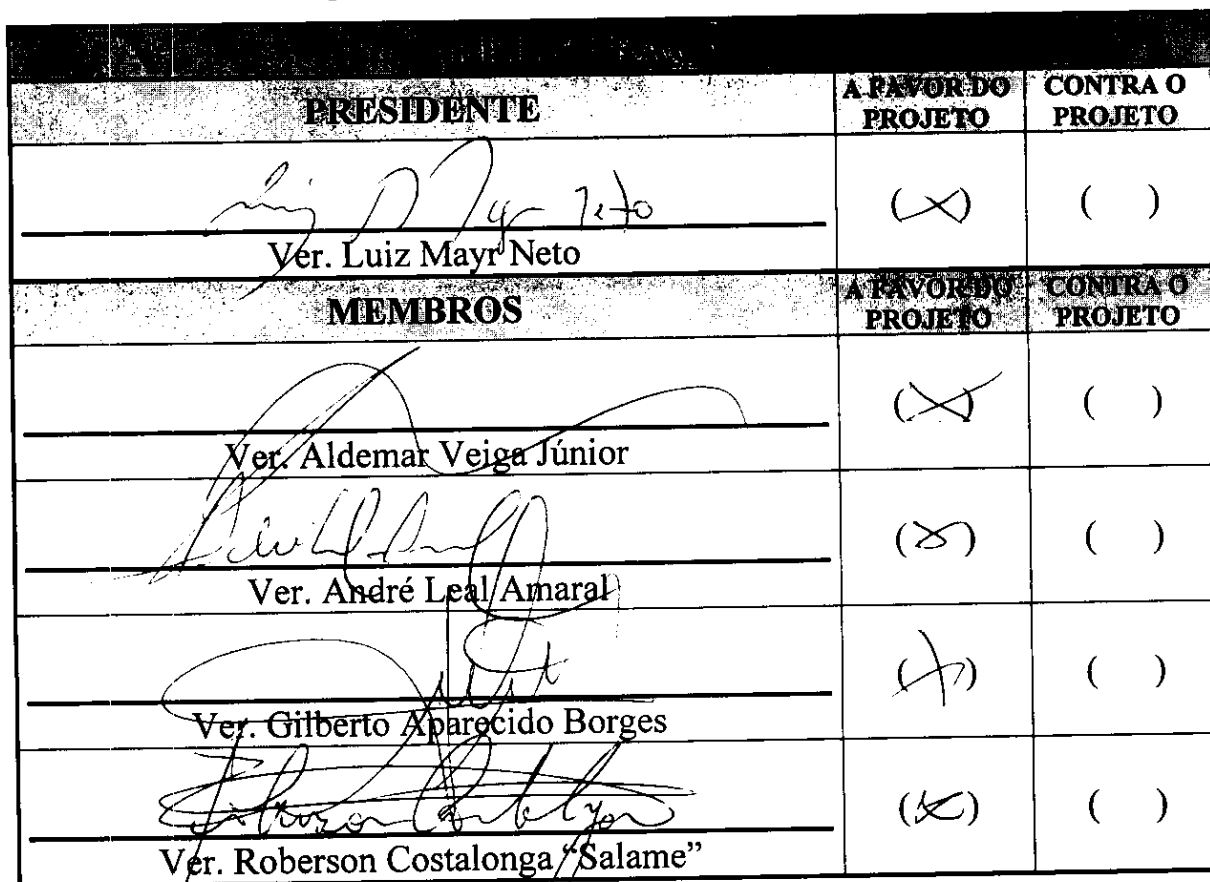 PRESIDENTE
A FAVOR DO PROJETO
CONTRA O PROJETO
(X)
( )
Ver. Luiz Mayr Neto
MEMBROS
A FAVOR DO PROJETO
CONTRA O PROJETO
(X)
( )
Ver. Aldemar Veiga Júnior
(X)
( )
Ver. André Leal Amaral
(X)
( )
Ver. Gilberto Aparecido Borges
(X)
( )
Ver. Roberson Costalonga "Salame"